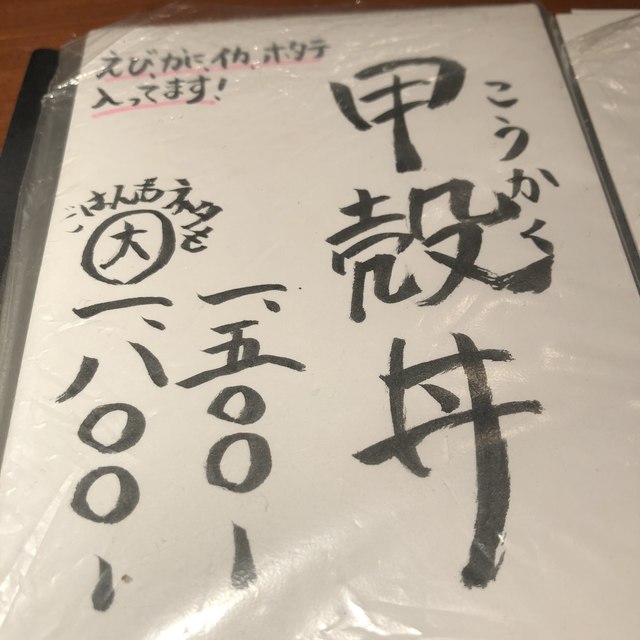 甲殻丼
こうかく
えび、かに、イカ、ホタテ
入ってます!
一、五〇〇ー
ごはんもネタも
大
一、八〇〇ー